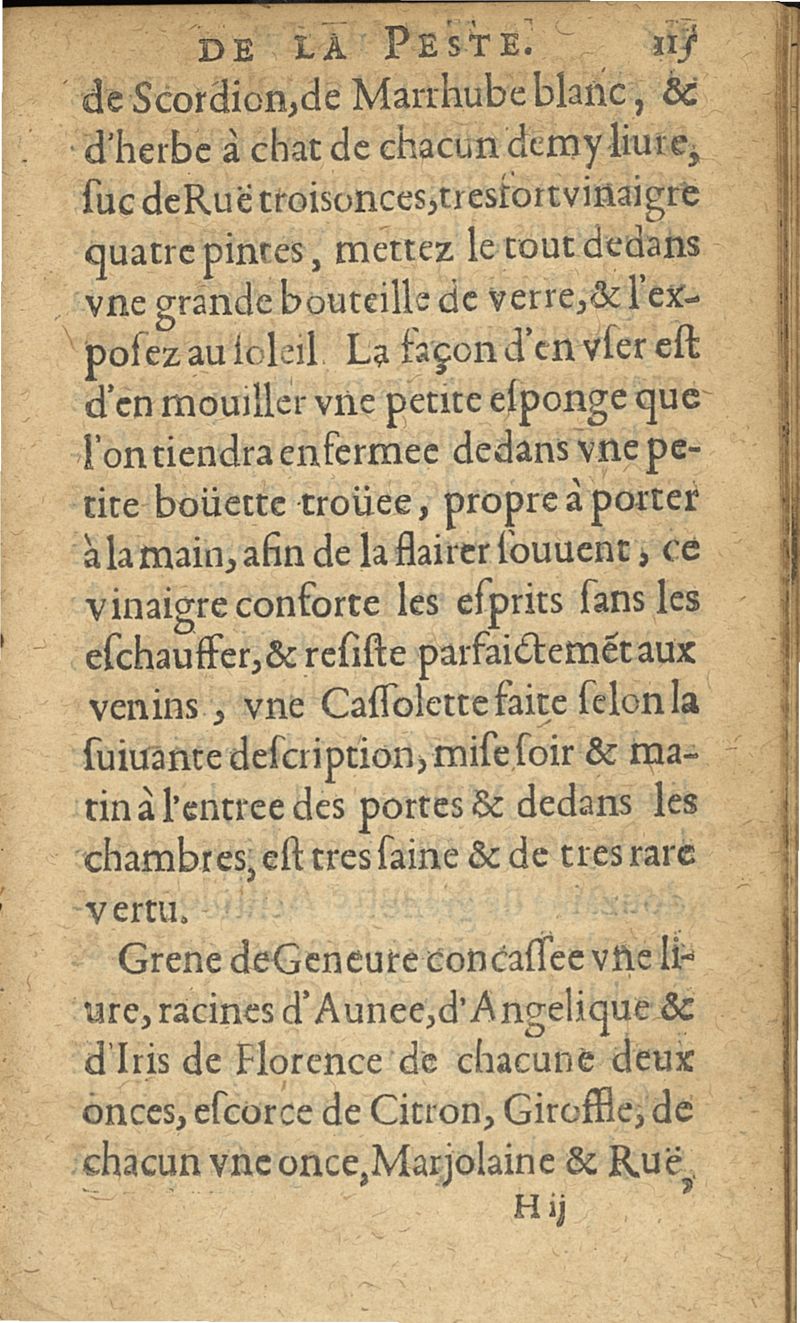 DE LA PESTE. 115
de Scordion, de Marrhube blanc, &
d'herbe à chat de chacun demy liure,
ſuc de Ruë trois onces, tres fort vinaigre
quatre pintes, mettez le tout dedans
vne grande bouteille de verre, & l'ex-
poſez au ſoleil. La façon d'en vſer eſt
d'en mouiller vne petite eſponge que
l'on tiendra enfermee dedans vne pe-
tite boüette troüee, propre à porter
à la main, afin de la flairer ſouuent, ce
vinaigre conforte les eſprits ſans les
eſchauffer, & reſiſte parfaictemẽt aux
venins, vne Caſſolette faite ſelon la
ſuiuante deſcription, miſe ſoir & ma-
tin à l'entree des portes & dedans les
chambres, eſt tres ſaine & de tres rare
vertu.
Grene de Geneure concaſſee vne li-
ure, racines d'Aunee, d'Angelique &
d'Iris de Florence de chacune deux
onces, eſcorce de Citron, Giroffle, de
chacun vne once, Marjolaine & Ruë,
H ij